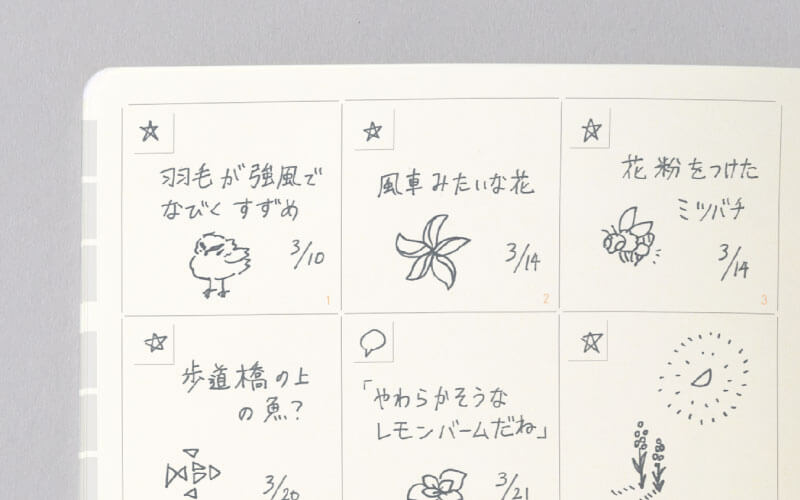 羽毛が強風で
なびくすずめ
3/10
1
風車みたいな花
3/14
2
花粉をつけた
ミツバチ
3/14
3
歩道橋の上
の魚?
3/20
「やわらかそうな
レモンバームだね」
3/21